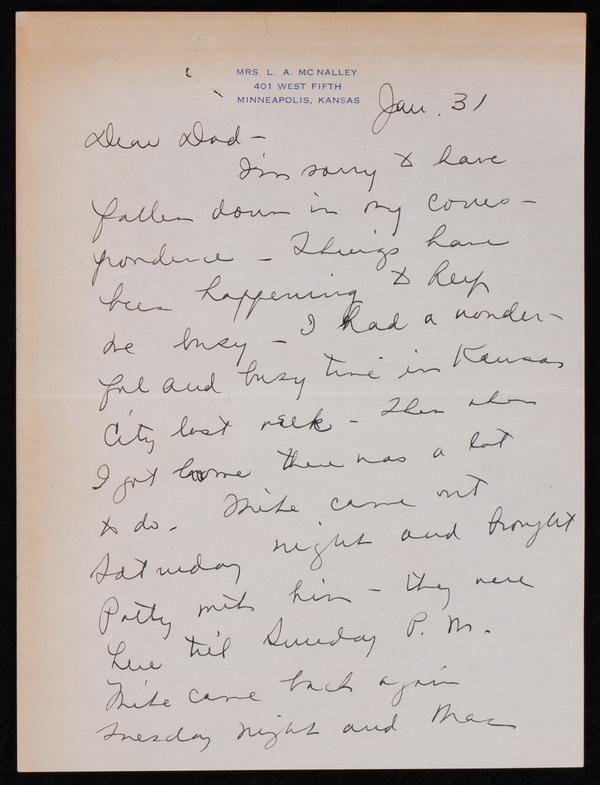 MRS. L. A. MC NALLEY
401 WEST FIFTH
MINNEAPOLIS, KANSAS
Jan. 31
Dear Dad -
I'm sorry to have
fallen down in my corres-
pondence - Things have
been happening to keep
me busy - I had a wonder-
ful and busy time in Kansas
City last week - Then when
I got home there was a lot
to do. Mike came out
Saturday night and brought
Patty with him - they were
here til Sunday P. M.
Mike came back again
Tuesday night and Mac